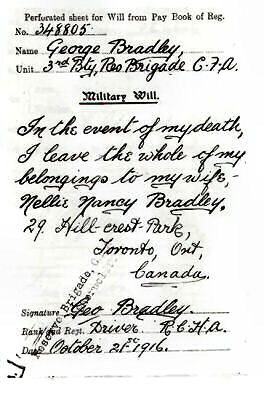 Perforated sheet for Will from Pay Book of Reg.
No. 348805.
Name George Bradley,
Unit 3rd Bty, Res Brigade C.F.A.
Military Will.
In the event of my death,
I leave the whole of my
belongings to my wife,-
Nellie Nancy Bradley.
29 Hill-crest-Park,
Toronto, Ont,
Canada.
Reserve Brigade, C.
Signature Geo Bradley.
Rank and Regt. Driver R.C.H.A.
Date October 21st 1916.